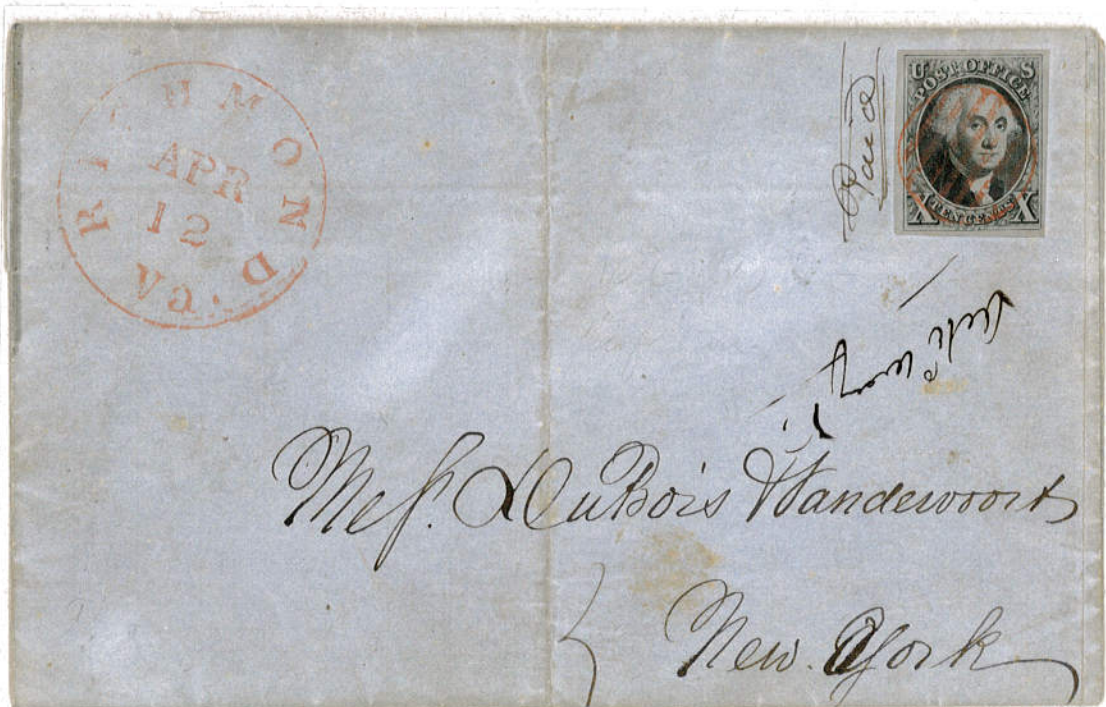 RICHMOND Va.
APR
12
Paid
U S
POST OFFICE
X TEN CENTS X
Mess. DuBois & Vandewoort
New. York